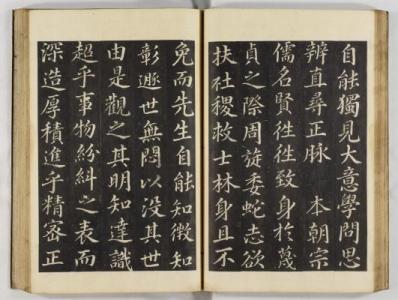 自能獨見大意學問思
辨直尋正脉 本朝宗
儒名賢徃徃致身於蔑
貞之際周旋委蛇志欲
扶社稷救士林身且不
免而先生自能知微知
彰遯世無悶以沒其世
由是觀之其明知達識
超乎事物紛糾之表而
深造厚積進乎精密正